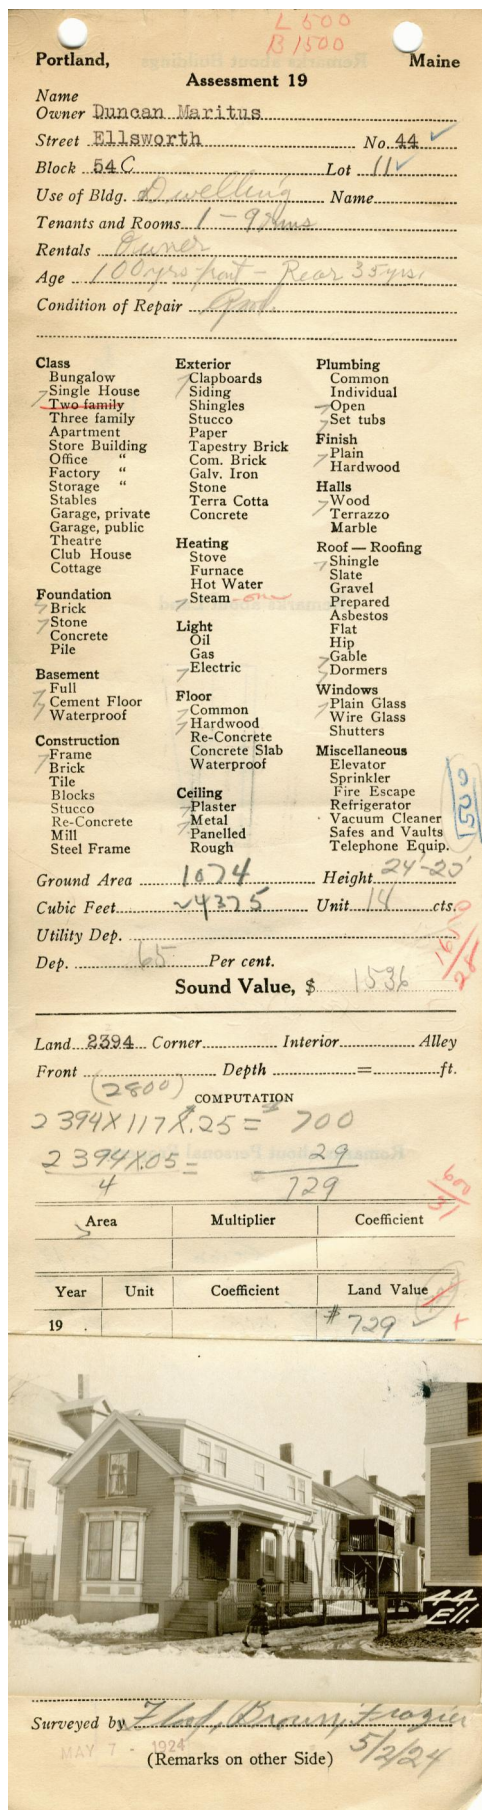 L 500
B 1500
Portland, Maine
Assessment 19
Name
Owner Duncan Maritus
Street Ellsworth No. 44
Block 54 C Lot 11
Use of Bldg. Dwelling Name
Tenants and Rooms 1 - 9 Rms
Rentals Owner
Age 100 yrs front - Rear 35 yrs.
Condition of Repair
Class
Bungalow
Single House
Two family
Three family
Apartment
Store Building
Office "
Factory "
Storage "
Stables
Garage, private
Garage, public
Theatre
Club House
Cottage
Foundation
Brick
Stone
Concrete
Pile
Basement
Full
Cement Floor
Waterproof
Construction
Frame
Brick
Tile
Blocks
Stucco
Re-Concrete
Mill
Steel Frame
Exterior
Clapboards
Siding
Shingles
Stucco
Paper
Tapestry Brick
Com. Brick
Galv. Iron
Stone
Terra Cotta
Concrete
Heating
Stove
Furnace
Hot Water
Steam
Light
Oil
Gas
Electric
Floor
Common
Hardwood
Re-Concrete
Concrete Slab
Waterproof
Ceiling
Plaster
Metal
Panelled
Rough
Plumbing
Common
Individual
Open
Set tubs
Finish
Plain
Hardwood
Halls
Wood
Terrazzo
Marble
Roof — Roofing
Shingle
Slate
Gravel
Prepared
Asbestos
Flat
Hip
Gable
Dormers
Windows
Plain Glass
Wire Glass
Shutters
Miscellaneous
Elevator
Sprinkler
Fire Escape
Refrigerator
Vacuum Cleaner
Safes and Vaults
Telephone Equip.
1500
Ground Area 1074 Height 24'-20'
Cubic Feet 24375 Unit 14 cts.
Utility Dep.
Dep. 65 Per cent.
Sound Value, $ 1536
Land 2394 Corner Interior Alley
Front Depth = ft.
(2800)
COMPUTATION
2394 X 117 X .25 = 700
2394 X .05 = 29
4 729
Area Multiplier Coefficient
Year Unit Coefficient Land Value
19 . $ 729
44
Ell.
Surveyed by Flood, Brown, Frazier
MAY 7 - 1924 5/2/24
(Remarks on other Side)